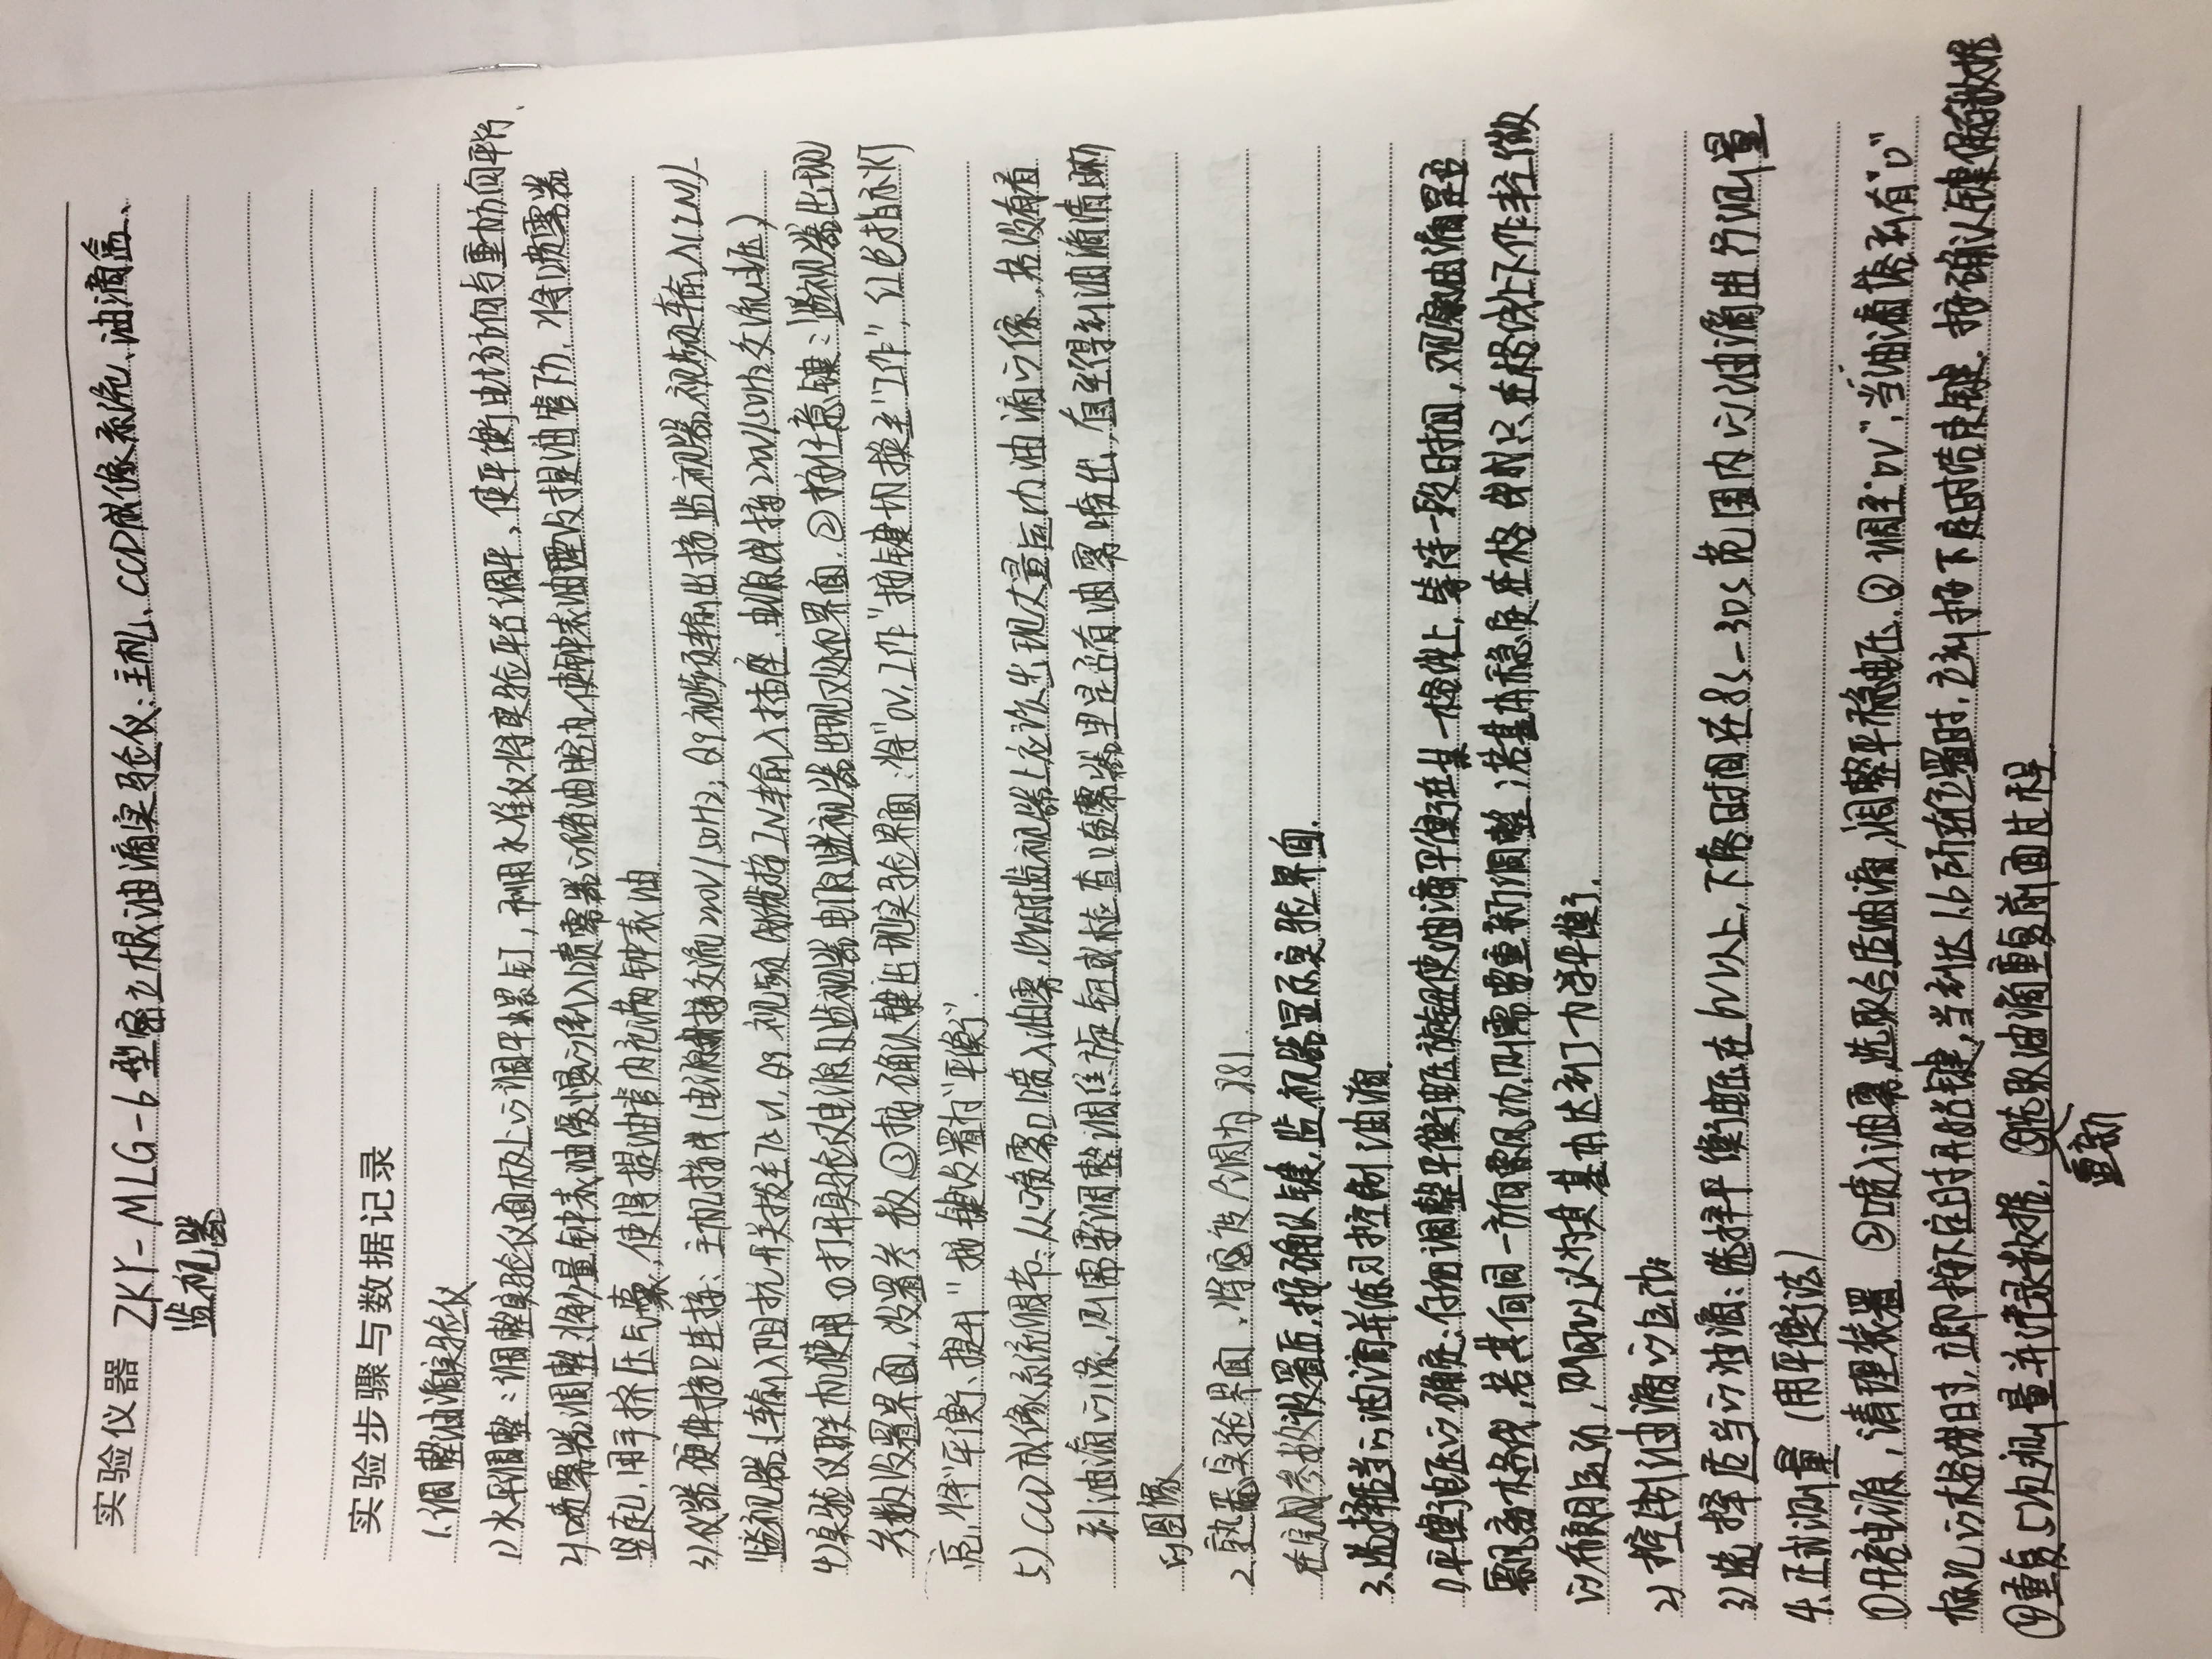 实验仪器 ZKY-MLG-6型密立根油滴实验仪：主机、CCD成像系统、油滴盒、
监视器
实验步骤与数据记录
1.调整油滴实验仪
1)水平调整：调整实验仪面板上的调平螺钉，利用水准仪将实验平台调平，使平衡电场方向与重力方向平行、
2)喷雾器调整：将少量钟表油缓慢的倒入喷雾器的储油腔内，使钟表油湮没提油管下方，将喷雾器
竖起，用手挤压气囊，使得提油管内充满钟表油.
3)仪器硬件接口连接：主机接线(电源线接交流220V/50Hz；Q9视频输出接监视器视频输入(IN)
监视器：输入阻抗开关拨至75Ω，Q9视频线缆接IN输入插座，电源线接220V/50Hz交流电压)
4)实验仪联机使用 ①打开实验仪电源及监视器电源，监视器出现欢迎界面，②按任意键：监视器出现
参数设置界面，设置参数 ③按确认键出现实验界面：将"0V、工作"按键切换至"工作"，红色指示灯
亮，将"平衡、提升"按键设置为"平衡".
5)CCD成像系统调节：从喷雾口喷入油雾，此时监视器上应该出现大量运动油滴的像，若没有看
到油滴的像，则需要调整调焦旋钮或检查喷雾器是否有油雾喷出，直至得到油滴清晰
的图像
2.熟悉实验界面.
在完成参数设置后，按确认键，监视器显示实验界面.
3.选择适当的油滴并练习控制油滴
1)平衡电压的确定：仔细调整平衡电压旋钮使油滴平衡在某一格线上，等待一段时间，观察油滴是否
飘离格线，若其向同一方向飘动，则需重新调整；若其基本稳定在格线或只在格线上下作轻微
的布朗运动，则可以认为其基本达到了力学平衡了.
2)控制油滴的运动：
3)选择适当的油滴：选择平衡电压在 以上，下落时间在8s-30s范围内的油滴进行测量
4.正式测量 (用平衡法)
①开启电源，清理装置 ②喷入油雾，选取合适油滴，调整平稳电压 ③调至"0V"，当油滴落到有"0"
标记的格线时，立即按下启动开始键，当到达1.6所在位置时，立刻按下启动结束键，按确认键保存数据
④重复5次测量并记录数据，⑤重新选取油滴重复前面过程